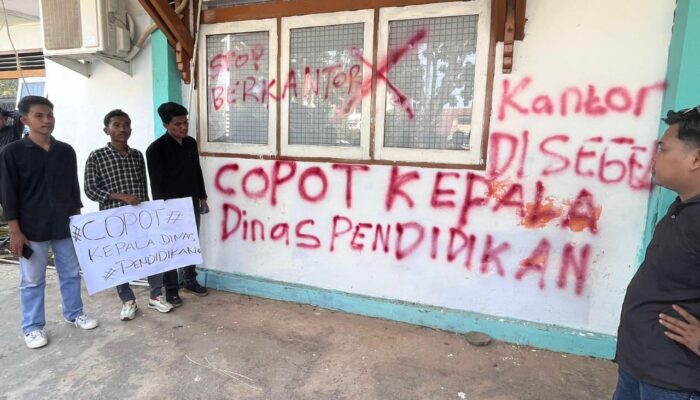 STOP
BERKANTOR X
Kantor
DISEGEL
COPOT KEPALA
Dinas PENDIDIKAN
#COPOT#
KEPALA DINAS
#PENDIDIKAN